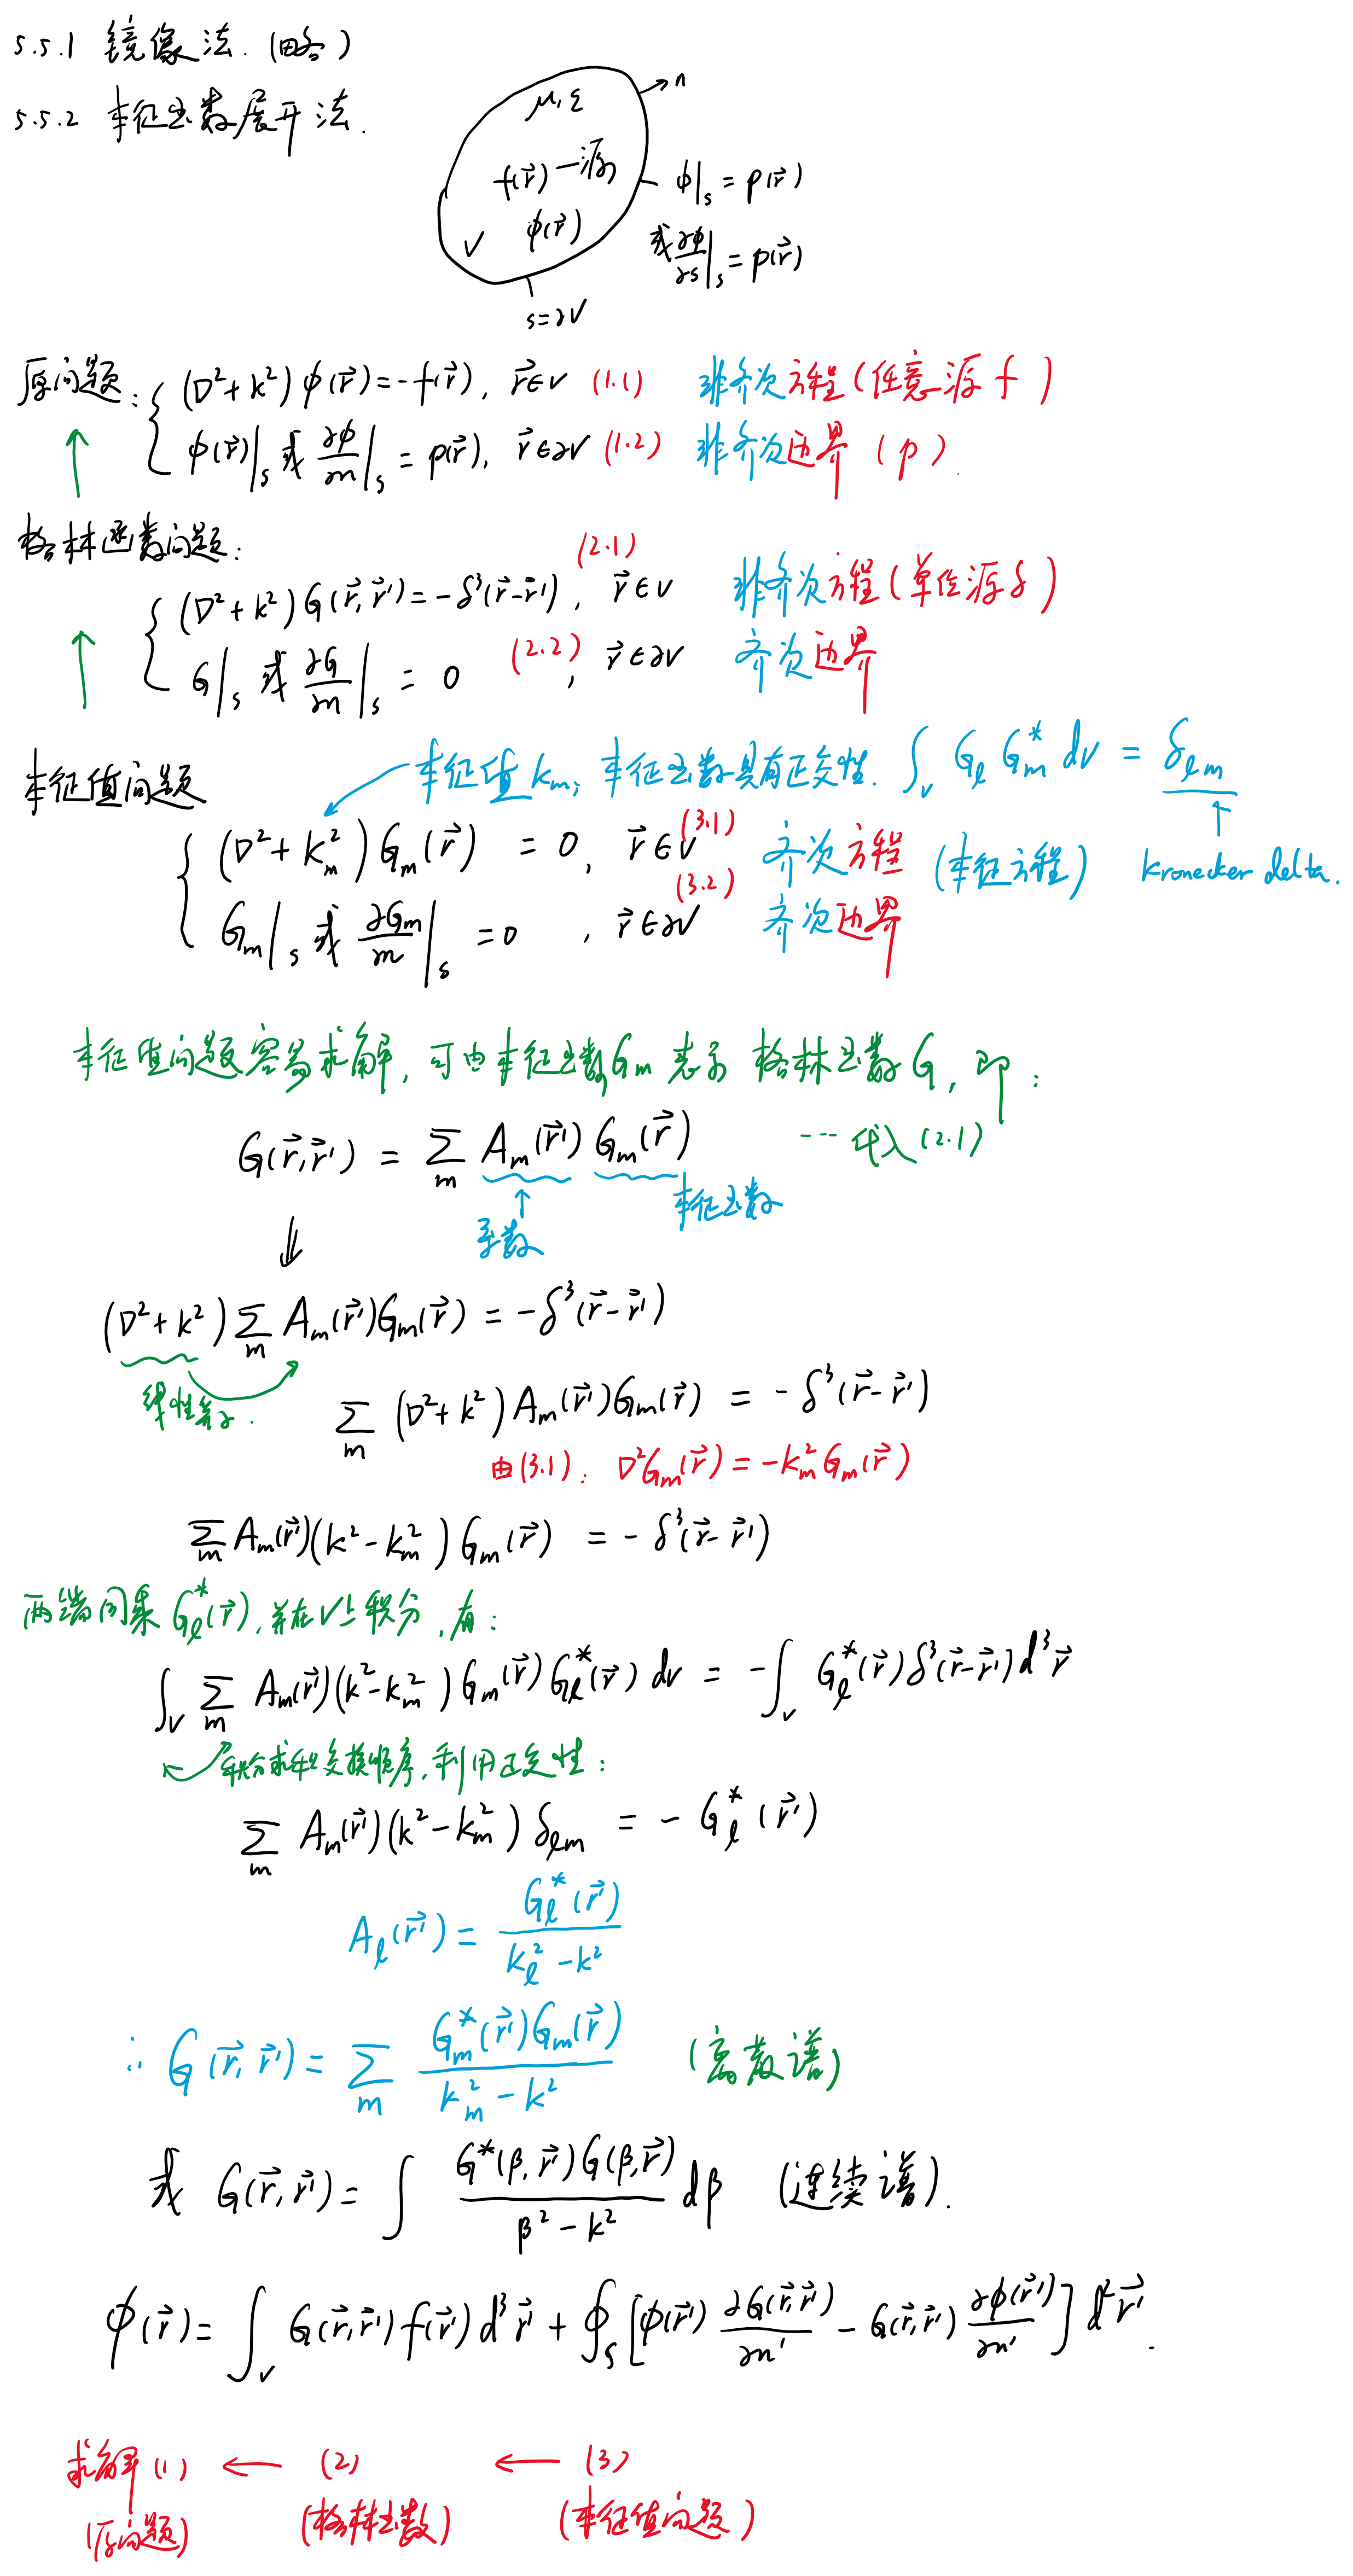 5.5.1 镜像法. (略)
5.5.2 本征函数展开法.
μ, ε
n
f(r⃗) — 源
V φ(r⃗)
φ|_s = p(r⃗)
或 ∂φ/∂s|_s = p(r⃗)
s=∂V
原问题: { (∇²+k²)φ(r⃗) = -f(r⃗), r⃗∈V (1.1) 非齐次方程 (任意源 f)
φ(r⃗)|_s 或 ∂φ/∂n|_s = p(r⃗), r⃗∈∂V (1.2) 非齐次边界 (p).
格林函数问题:
{ (∇²+k²)G(r⃗,r⃗') = -δ³(r⃗-r⃗'), r⃗∈V (2.1) 非齐次方程 (单位源 δ)
G|_s 或 ∂G/∂n|_s = 0 (2.2), r⃗∈∂V 齐次边界
本征值问题 本征值 k_m; 本征函数具有正交性. ∫_V G_ℓ G_m^* dV = δ_ℓm
{ (∇²+k_m²)G_m(r⃗) = 0, r⃗∈V (3.1) 齐次方程 (本征方程) kronecker delta.
G_m|_s 或 ∂G_m/∂n|_s = 0, r⃗∈∂V (3.2) 齐次边界
本征值问题容易求解, 可由本征函数G_m 表示 格林函数G, 即:
G(r⃗,r⃗') = Σ_m A_m(r⃗') G_m(r⃗) --- 代入(2.1)
系数 本征函数
⇓
(∇²+k²) Σ_m A_m(r⃗')G_m(r⃗) = -δ³(r⃗-r⃗')
线性算子.
Σ_m (∇²+k²) A_m(r⃗')G_m(r⃗) = -δ³(r⃗-r⃗')
由(3.1): ∇²G_m(r⃗) = -k_m² G_m(r⃗)
Σ_m A_m(r⃗')(k²-k_m²) G_m(r⃗) = -δ³(r⃗-r⃗')
两端同乘 G_ℓ^*(r⃗), 并在V上积分, 有:
∫_V Σ_m A_m(r⃗')(k²-k_m²) G_m(r⃗) G_ℓ^*(r⃗) dV = -∫_V G_ℓ^*(r⃗) δ³(r⃗-r⃗') d³r⃗
积分求和交换顺序, 利用正交性:
Σ_m A_m(r⃗')(k²-k_m²) δ_ℓm = -G_ℓ^*(r⃗')
A_ℓ(r⃗') = G_ℓ^*(r⃗') / (k_ℓ² - k²)
∴ G(r⃗,r⃗') = Σ_m G_m^*(r⃗')G_m(r⃗) / (k_m² - k²) (离散谱)
或 G(r⃗,r⃗') = ∫ G^*(β,r⃗')G(β,r⃗) / (β² - k²) dβ (连续谱).
φ(r⃗) = ∫_V G(r⃗,r⃗') f(r⃗') d³r⃗' + ∮_S [φ(r⃗') ∂G(r⃗,r⃗')/∂n' - G(r⃗,r⃗') ∂φ(r⃗')/∂n'] d²r⃗'.
求解 (1) ← (2) ← (3)
(原问题) (格林函数) (本征值问题)